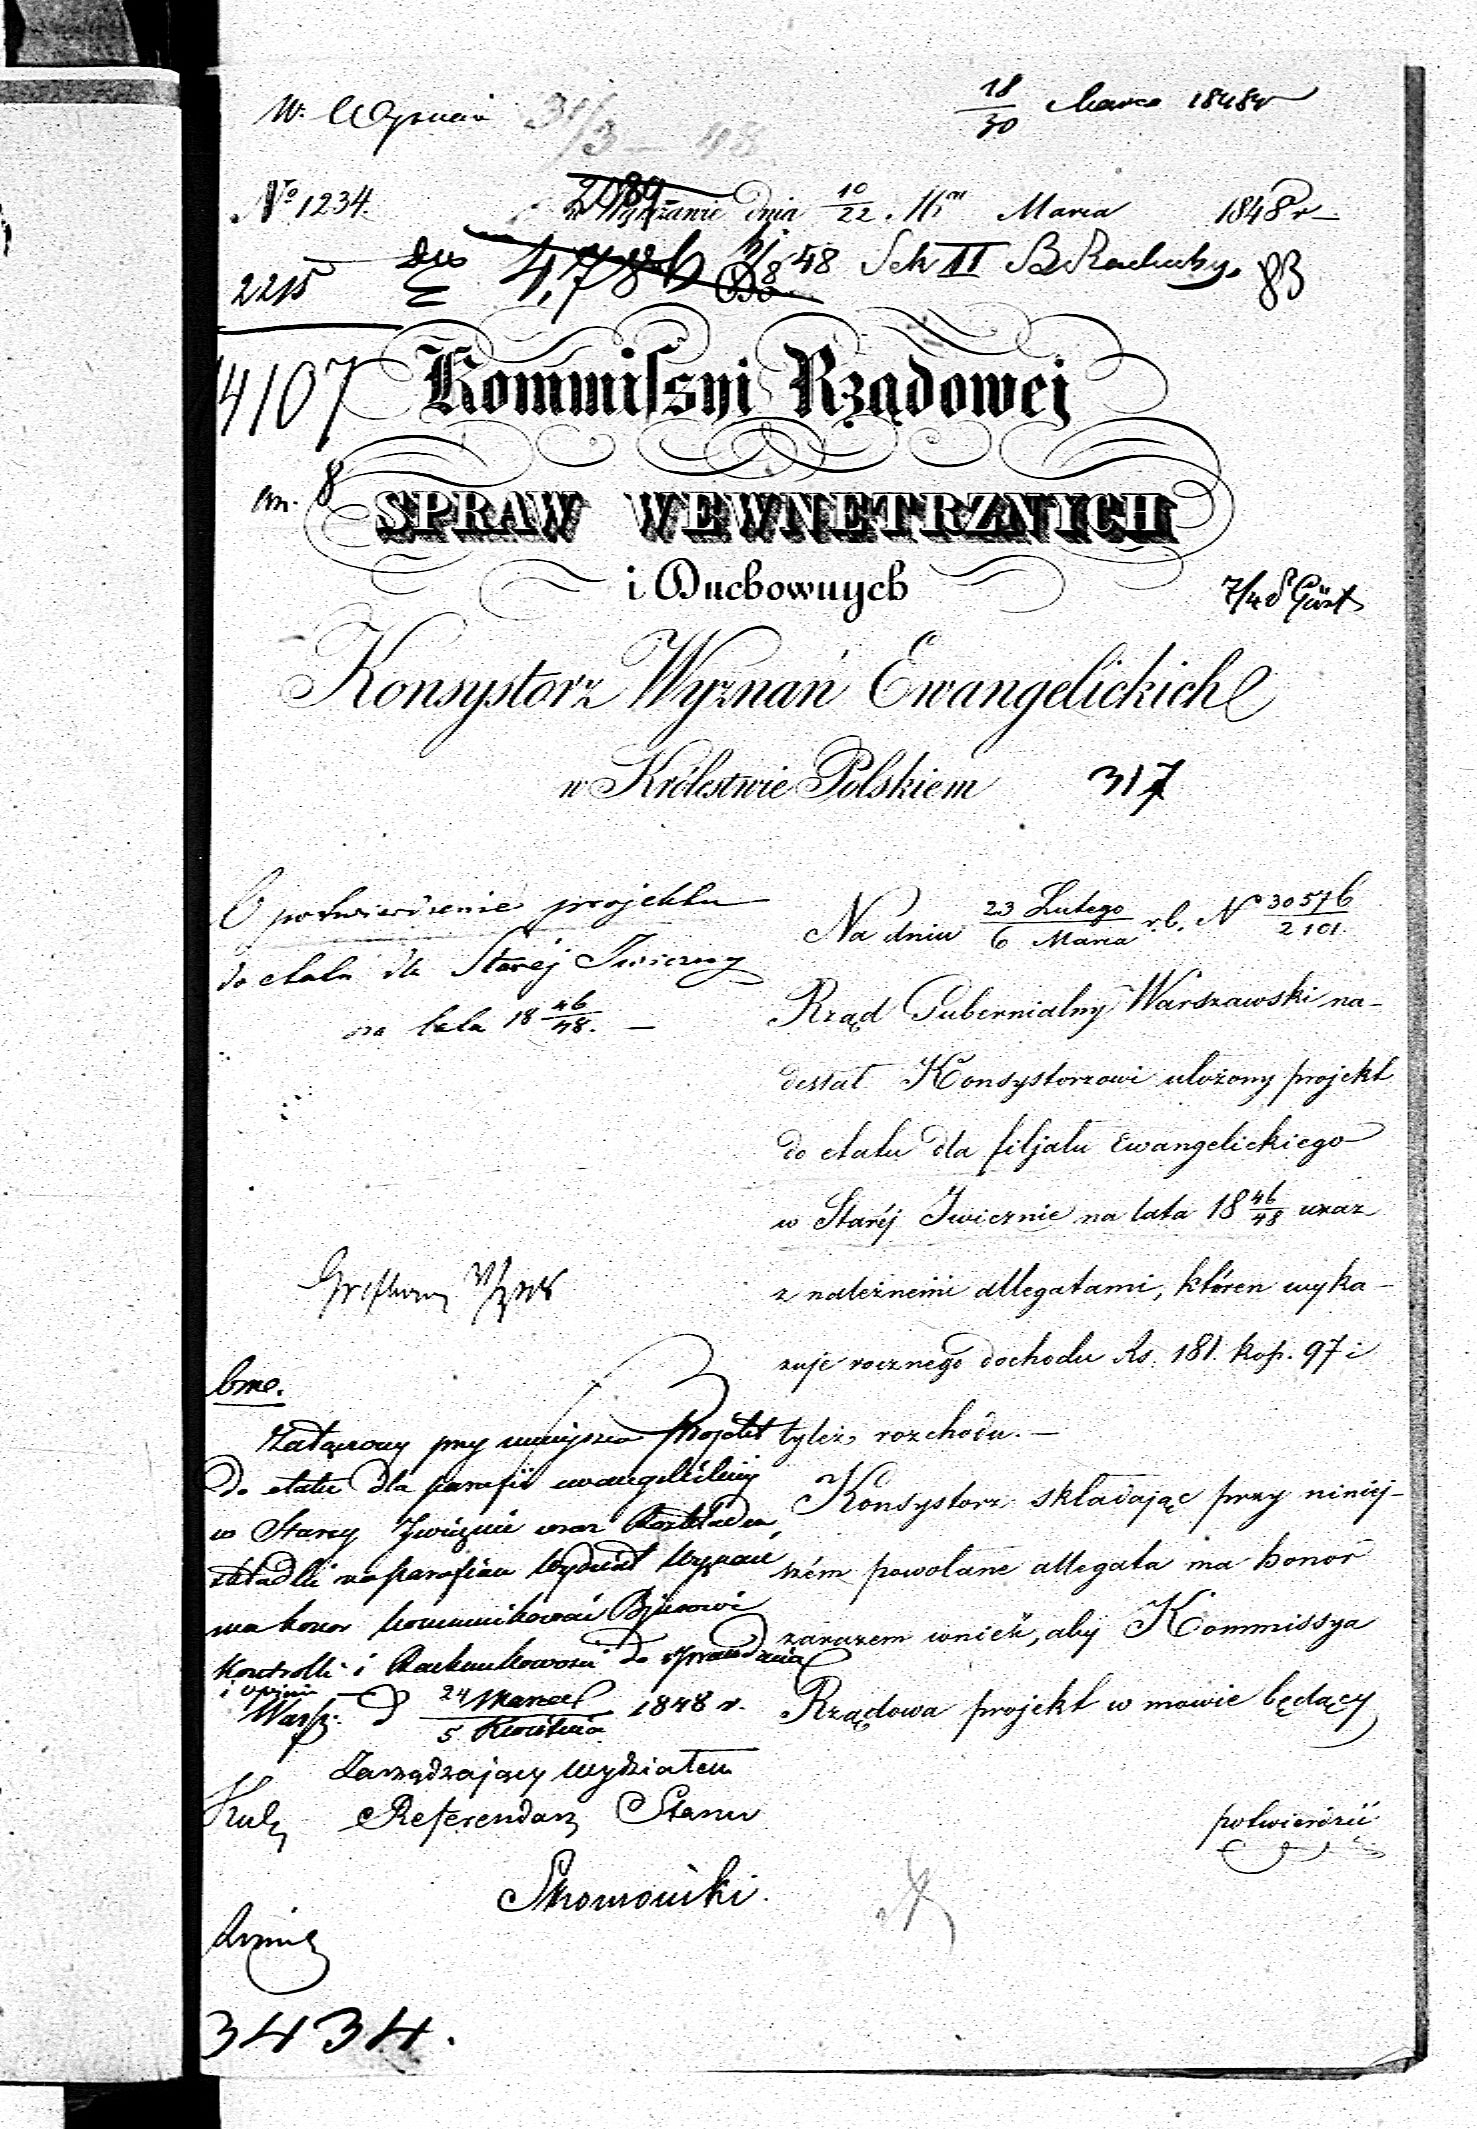 W. Wyznań 31/3 – 48
18/30 Marca 1848 r
No 1234.
w Warszawie dnia 10/22 Marca 1848 r
2215
4,786 48 Sek II B. Rachuby. 83
Kommissyi Rządowej
4107
SPRAW WEWNETRZNYCH
8
i Duchownych
7/4
Konsystorz Wyznań Ewangelickich
w Królestwie Polskiem 317
O potwierdzenie projektu
do etatu dla Starej Iwiczny
na lata 18 46/48. —
Na dniu 23 Lutego/6 Marca r. b. N 30576/2101.
Rząd Gubernialny Warszawski na-
desłał Konsystorzowi ułożony projekt
do etatu dla filjału Ewangelickiego
w Starej Iwicznie na lata 18 46/48 wraz
z należnemi allegatami, któren wyka-
zuje rocznego dochodu Rs. 181. kop. 97 i
tyleż rozchodu. —
Konsystorz składając przy niniej-
szém powołane allegata ma honor
zarazem wnieść, aby Kommissya
Rządowa projekt w mowie będący
potwierdzić
bme.
Załączony przy niniejszem Projekt
do etatu dla parafii ewangelickiej
w Starej Iwicznie wraz Rozkładem
składki na parafian Wydział Wyznań
ma honor kommunikować Bjurowi
Kontrolli i Rachunkowości do sprawdzenia
i opinii
Warsz. d 24 Marca/5 Kwietnia 1848 r.
Zarządzający Wydziałem
Referendarz Stanu
3434.